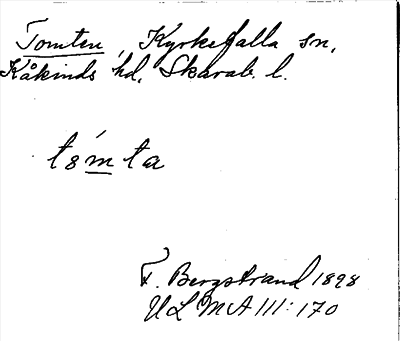 Tomten, Kyrkefalla sn,
Kåkinds hd, Skarab. l.
t8́mta
F. Bergstrand 1898
ULMA III: 170